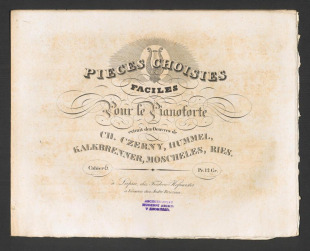 PIECES CHOISIES
FACILES
Pour le Pianoforte
extrait des Oeuvres de
CH. CZERNY, HUMMEL,
KALKBRENNER, MOSCHELES, RIES.
Cahier
Pr. 12 Gr.
à Leipzic, chez Frédéric Hofmeister